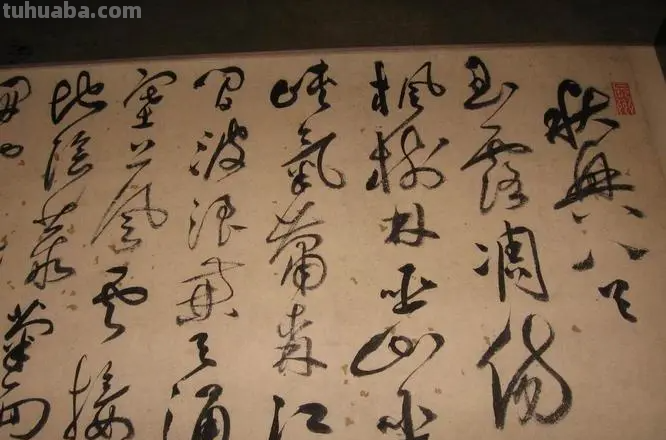 tuhuaba.com
秋興八首
玉露凋傷
楓樹林巫山巫
峽氣蕭森江
間波浪兼天湧
塞上風雲接
地陰叢菊兩